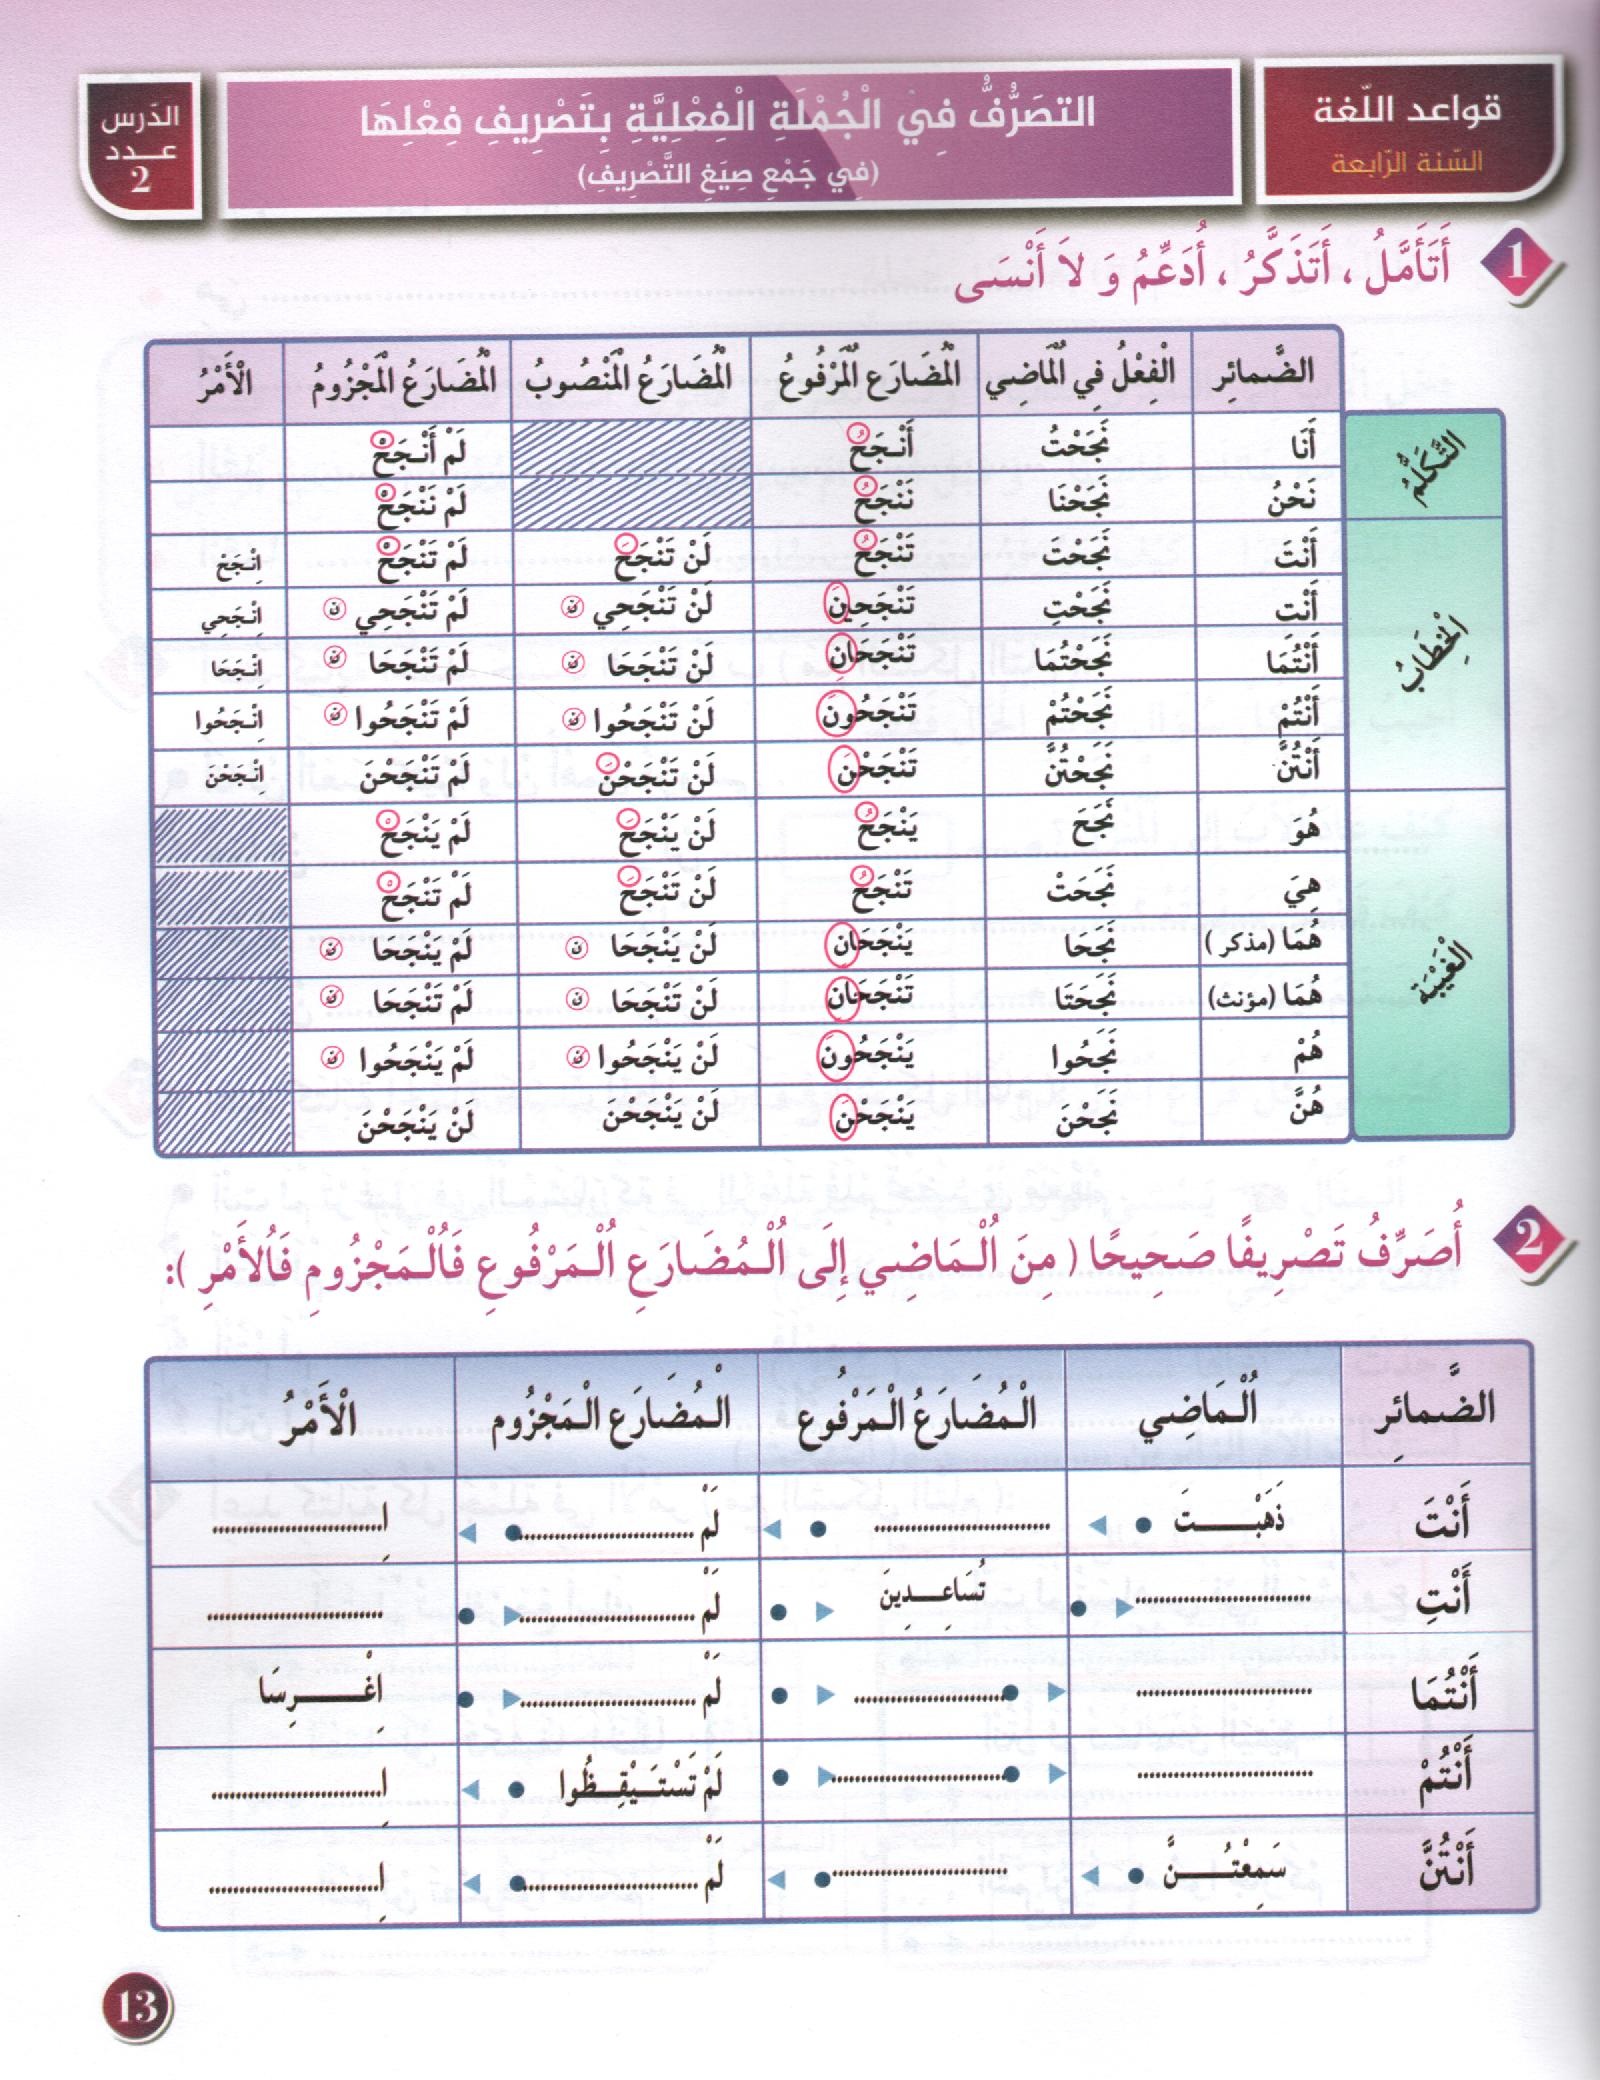 قواعد اللّغة
السّنة الرّابعة
التصَرُّفُ فِي الْجُمْلَةِ الْفِعْلِيَّةِ بِتَصْرِيفِ فِعْلِهَا
(فِي جَمْعِ صِيَغِ التَّصْرِيفِ)
الدَرس
عــدد
2
1 أَتَأَمَّلُ ، أَتَذَكَّرُ ، أُدَعِّمُ وَ لاَ أَنْسَى
الضَّمائِر الْفِعْلُ فِي الْمَاضِي الْمُضَارَع الْمَرْفُوعُ الْمُضَارَعُ الْمَنْصُوبُ الْمُضَارَعُ الْمَجْزُومُ الْأَمْرُ
التَّكَلُّمُ
أَنَا نَجَحْتُ أَنْجَحُ لَمْ أَنْجَحْ
نَحْنُ نَجَحْنَا نَنْجَحُ لَمْ نَنْجَحْ
الْخِطَابُ
أَنْتَ نَجَحْتَ تَنْجَحُ لَنْ تَنْجَحَ لَمْ تَنْجَحْ اِنْجَحْ
أَنْت نَجَحْتِ تَنْجَحِينَ لَنْ تَنْجَحِي ن لَمْ تَنْجَحِي ن اِنْجَحِي
أَنْتُمَا نَجَحْتُمَا تَنْجَحَانِ لَنْ تَنْجَحَا ن لَمْ تَنْجَحَا ن اِنْجَحَا
أَنْتُمْ نَجَحْتُمْ تَنْجَحُونَ لَنْ تَنْجَحُوا ن لَمْ تَنْجَحُوا ن اِنْجَحُوا
أَنْتُنَّ نَجَحْتُنَّ تَنْجَحْنَ لَنْ تَنْجَحْنَ لَمْ تَنْجَحْنَ اِنْجَحْنَ
الْغَيْبَة
هُوَ نَجَحَ يَنْجَحُ لَنْ يَنْجَحَ لَمْ يَنْجَحْ
هِيَ نَجَحَتْ تَنْجَحُ لَنْ تَنْجَحَ لَمْ تَنْجَحْ
هُمَا (مذكر) نَجَحا يَنْجَحَانِ لَنْ يَنْجَحَا ن لَمْ يَنْجَحَا ن
هُمَا (مؤنث) نَجَحَتَا تَنْجَحَانِ لَنْ تَنْجَحَا ن لَمْ تَنْجَحَا ن
هُمْ نَجَحُوا يَنْجَحُونَ لَنْ يَنْجَحُوا ن لَمْ يَنْجَحُوا ن
هُنَّ نَجَحْنَ يَنْجَحْنَ لَنْ يَنْجَحْنَ لَنْ يَنْجَحْنَ
2 أُصَرِّفُ تَصْرِيفًا صَحِيحًا ( مِنَ اُلْمَاضِي إِلَى اُلْمُضَارَعِ اُلْمَرْفُوعِ فَاُلْمَجْزُومِ فَاُلأَمْرِ ):
الضَّمائِر اُلْمَاضِي الْمُضَارَعُ الْمَرْفُوع الْمُضَارَع الْمَجْزُوم الْأَمْرُ
أَنْتَ ذَهَبْــــتَ .............. لَمْ .............. اِ..............
أَنْتِ .............. تُسَاعِــدِينَ لَمْ .............. ..............
أَنْتُمَا .............. .............. لَمْ .............. اِغْـــــرِسَا
أَنْتُمْ .............. .............. لَمْ تَسْتَـيْقِــظُوا اِ..............
أَنْتُنَّ سَمِعْتُـــــنَّ .............. لَمْ .............. اِ..............
13